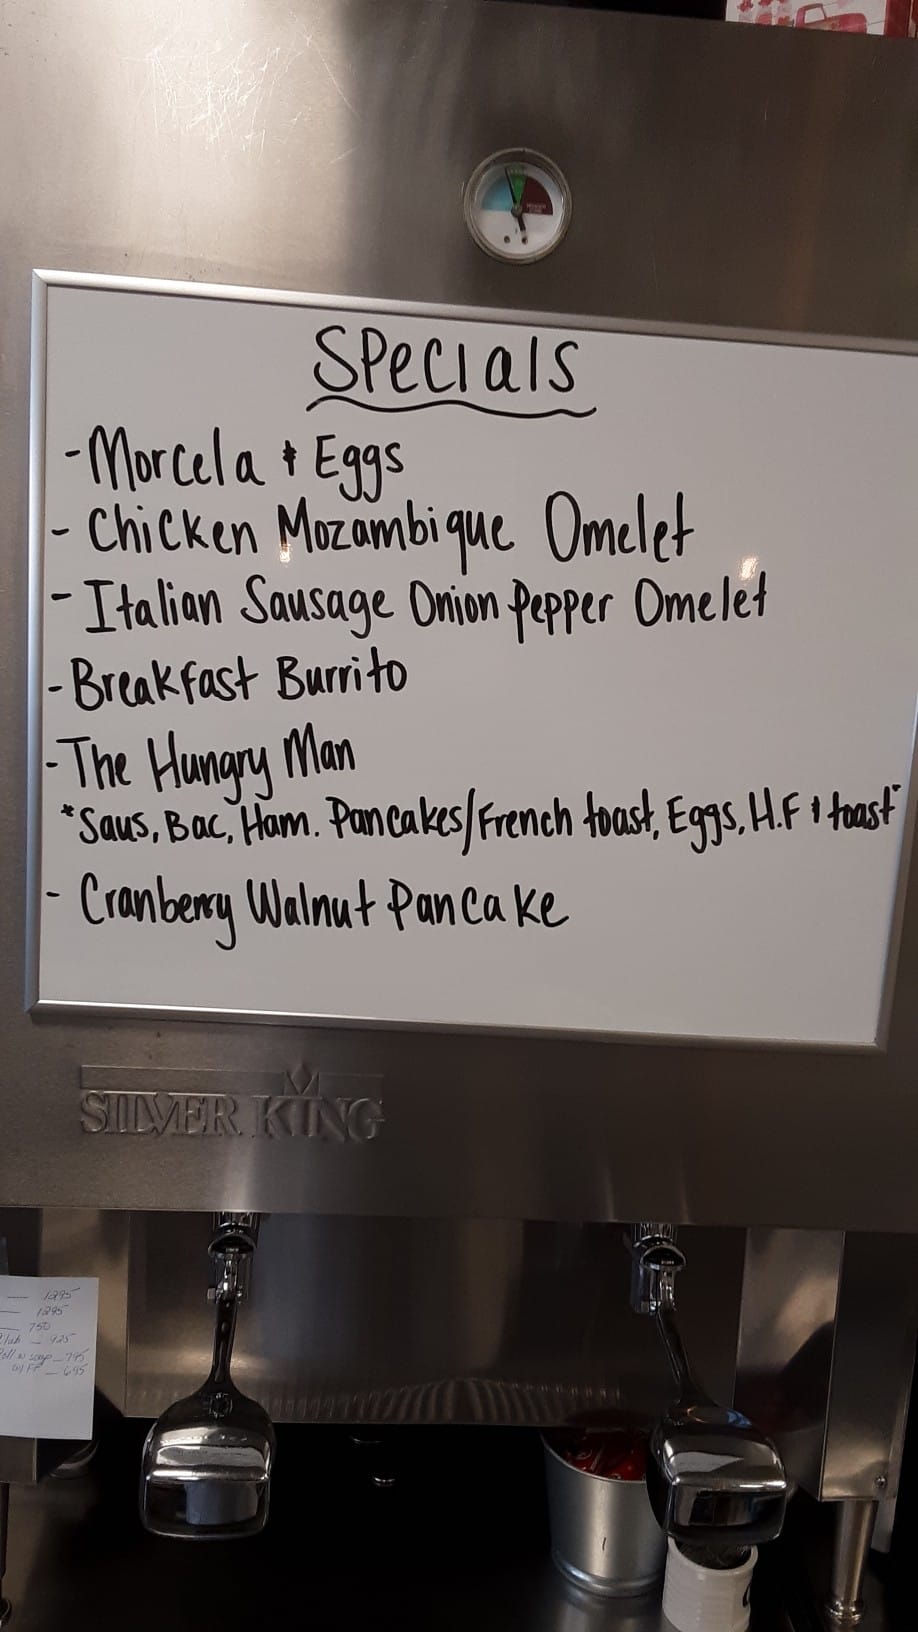 Specials
- Morcela & Eggs
- Chicken Mozambique Omelet
- Italian Sausage Onion Pepper Omelet
- Breakfast Burrito
- The Hungry Man
*Saus, Bac, Ham. Pancakes/French toast, Eggs, H.F & toast*
- Cranberry Walnut Pancake
SILVER KING
1295
1295
750
925
795
695